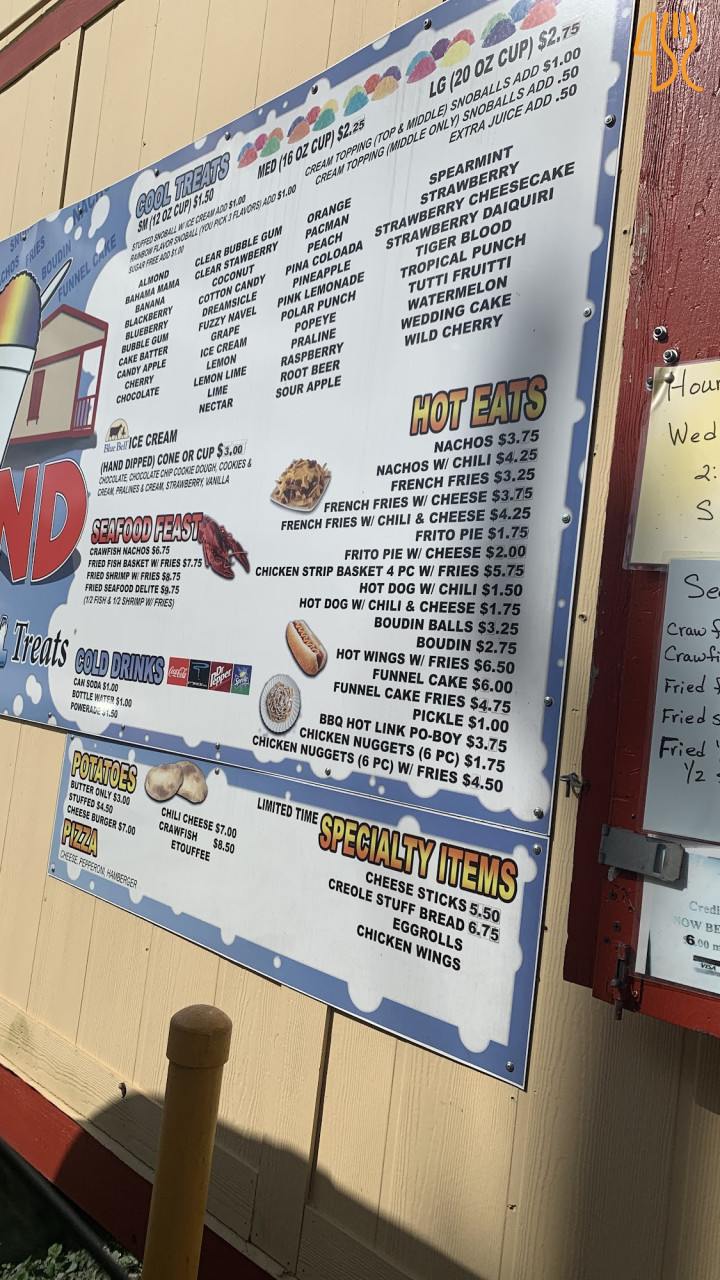 COOL TREATS
SM (12 OZ CUP) $1.50
MED (16 OZ CUP) $2.25
LG (20 OZ CUP) $2.75
STUFFED SNOBALL W/ ICE CREAM ADD $1.00
RAINBOW FLAVOR SNOBALL (YOU PICK 3 FLAVORS) ADD $1.00
SUGAR FREE ADD $1.00
CREAM TOPPING (TOP & MIDDLE) SNOBALLS ADD $1.00
CREAM TOPPING (MIDDLE ONLY) SNOBALLS ADD .50
EXTRA JUICE ADD .50
ALMOND
BAHAMA MAMA
BANANA
BLACKBERRY
BLUEBERRY
BUBBLE GUM
CAKE BATTER
CANDY APPLE
CHERRY
CHOCOLATE
CLEAR BUBBLE GUM
CLEAR STAWBERRY
COCONUT
COTTON CANDY
DREAMSICLE
FUZZY NAVEL
GRAPE
ICE CREAM
LEMON
LEMON LIME
LIME
NECTAR
ORANGE
PACMAN
PEACH
PINA COLOADA
PINEAPPLE
PINK LEMONADE
POLAR PUNCH
POPEYE
PRALINE
RASPBERRY
ROOT BEER
SOUR APPLE
SPEARMINT
STRAWBERRY
STRAWBERRY CHEESECAKE
STRAWBERRY DAIQUIRI
TIGER BLOOD
TROPICAL PUNCH
TUTTI FRUITTI
WATERMELON
WEDDING CAKE
WILD CHERRY
FRIES
BOUDIN
FUNNEL CAKE
ND
Treats
Blue Bell ICE CREAM
(HAND DIPPED) CONE OR CUP $3.00
CHOCOLATE, CHOCOLATE CHIP COOKIE DOUGH, COOKIES &
CREAM, PRALINES & CREAM, STRAWBERRY, VANILLA
SEAFOOD FEAST
CRAWFISH NACHOS $6.75
FRIED FISH BASKET W/ FRIES $7.75
FRIED SHRIMP W/ FRIES $8.75
FRIED SEAFOOD DELITE $9.75
(1/2 FISH & 1/2 SHRIMP W/ FRIES)
COLD DRINKS
Coca-Cola
Dr Pepper
Sprite
CAN SODA $1.00
BOTTLE WATER $1.00
POWERADE $1.50
HOT EATS
NACHOS $3.75
NACHOS W/ CHILI $4.25
FRENCH FRIES $3.25
FRENCH FRIES W/ CHEESE $3.75
FRENCH FRIES W/ CHILI & CHEESE $4.25
FRITO PIE $1.75
FRITO PIE W/ CHEESE $2.00
CHICKEN STRIP BASKET 4 PC W/ FRIES $5.75
HOT DOG W/ CHILI $1.50
HOT DOG W/ CHILI & CHEESE $1.75
BOUDIN BALLS $3.25
BOUDIN $2.75
HOT WINGS W/ FRIES $6.50
FUNNEL CAKE $6.00
FUNNEL CAKE FRIES $4.75
PICKLE $1.00
BBQ HOT LINK PO-BOY $3.75
CHICKEN NUGGETS (6 PC) $1.75
CHICKEN NUGGETS (6 PC) W/ FRIES $4.50
POTATOES
BUTTER ONLY $3.00
STUFFED $4.50
CHEESE BURGER $7.00
CHILI CHEESE $7.00
CRAWFISH $8.50
ETOUFFEE
PIZZA
CHEESE, PEPPERONI, HAMBERGER
LIMITED TIME SPECIALTY ITEMS
CHEESE STICKS 5.50
CREOLE STUFF BREAD 6.75
EGGROLLS
CHICKEN WINGS
Hour
Wed
2:
S
Se
Craw f
Crawfi
Fried f
Fried s
Fried
1/2
Credi
NOW BE
6.00 m
VISA